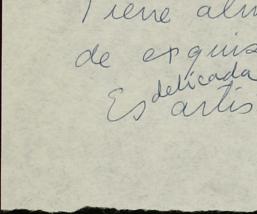 Tiene alm
de exquis
delicada
Es artis